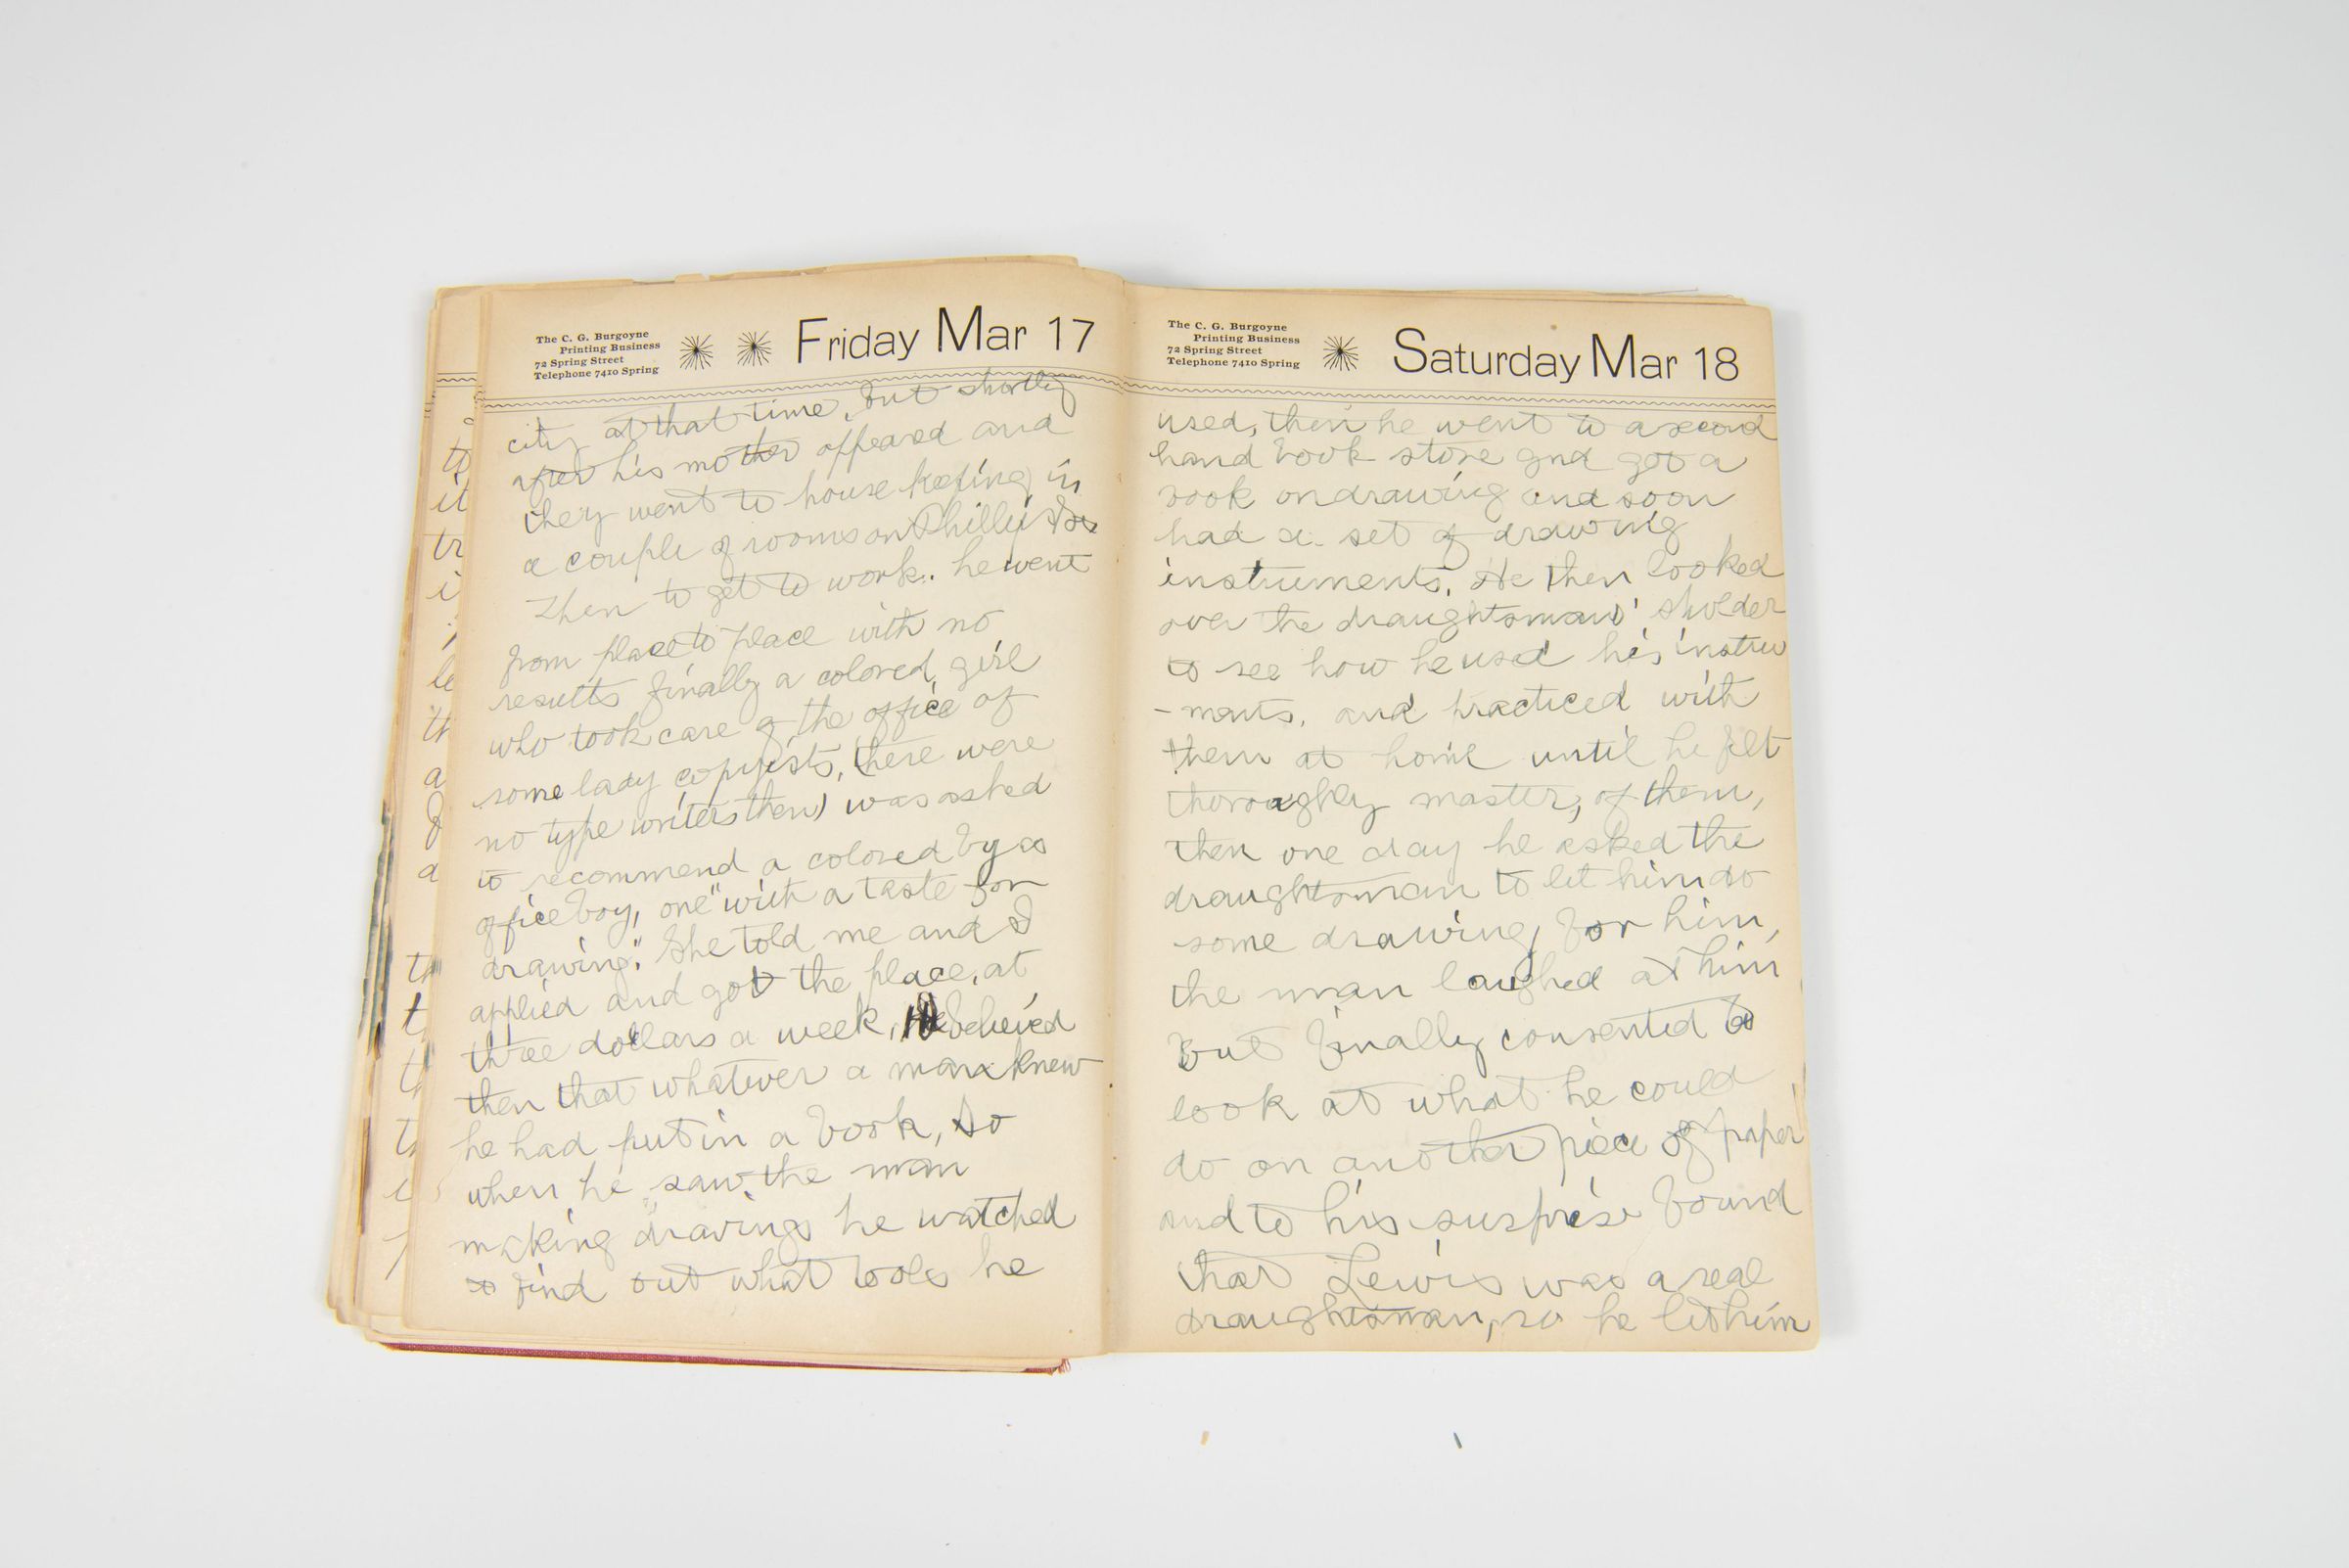 The C. G. Burgoyne
Printing Business
72 Spring Street
Telephone 7410 Spring
Friday Mar 17
city at that time, but shortly
after his mother appeared and
they went to house keeping in
a couple of rooms on Phillips
then to get to work. he went
from place to place with no
results finally a colored girl
who took care of the office of
some lady copyists, (there were
no type writers then) was asked
to recommend a colored by as
office boy, one "with a taste for
drawing." She told me and I
applied and got the place, at
three dollars a week, He believed
then that whatever a man knew
he had put in a book, so
when he saw the man
making drawings he watched
to find out what tools he
The C. G. Burgoyne
Printing Business
72 Spring Street
Telephone 7410 Spring
Saturday Mar 18
used, then he went to a second
hand book store and got a
book on drawing and soon
had a set of drawing
instruments. He then looked
over the draughtsmans' sholder
to see how he used his instru
-ments. and practiced with
them at home until he felt
thoroughly master, of them,
then one day he asked the
draughtsman to let him do
some drawing for him,
the man laughed at him
but finally consented to
look at what he could
do on another piece of paper
and to his surprise found
that Lewis was a real
draughtsman, so he let him